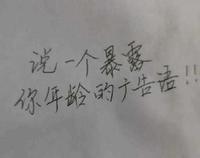 说一个暴露
你年龄的广告语!!